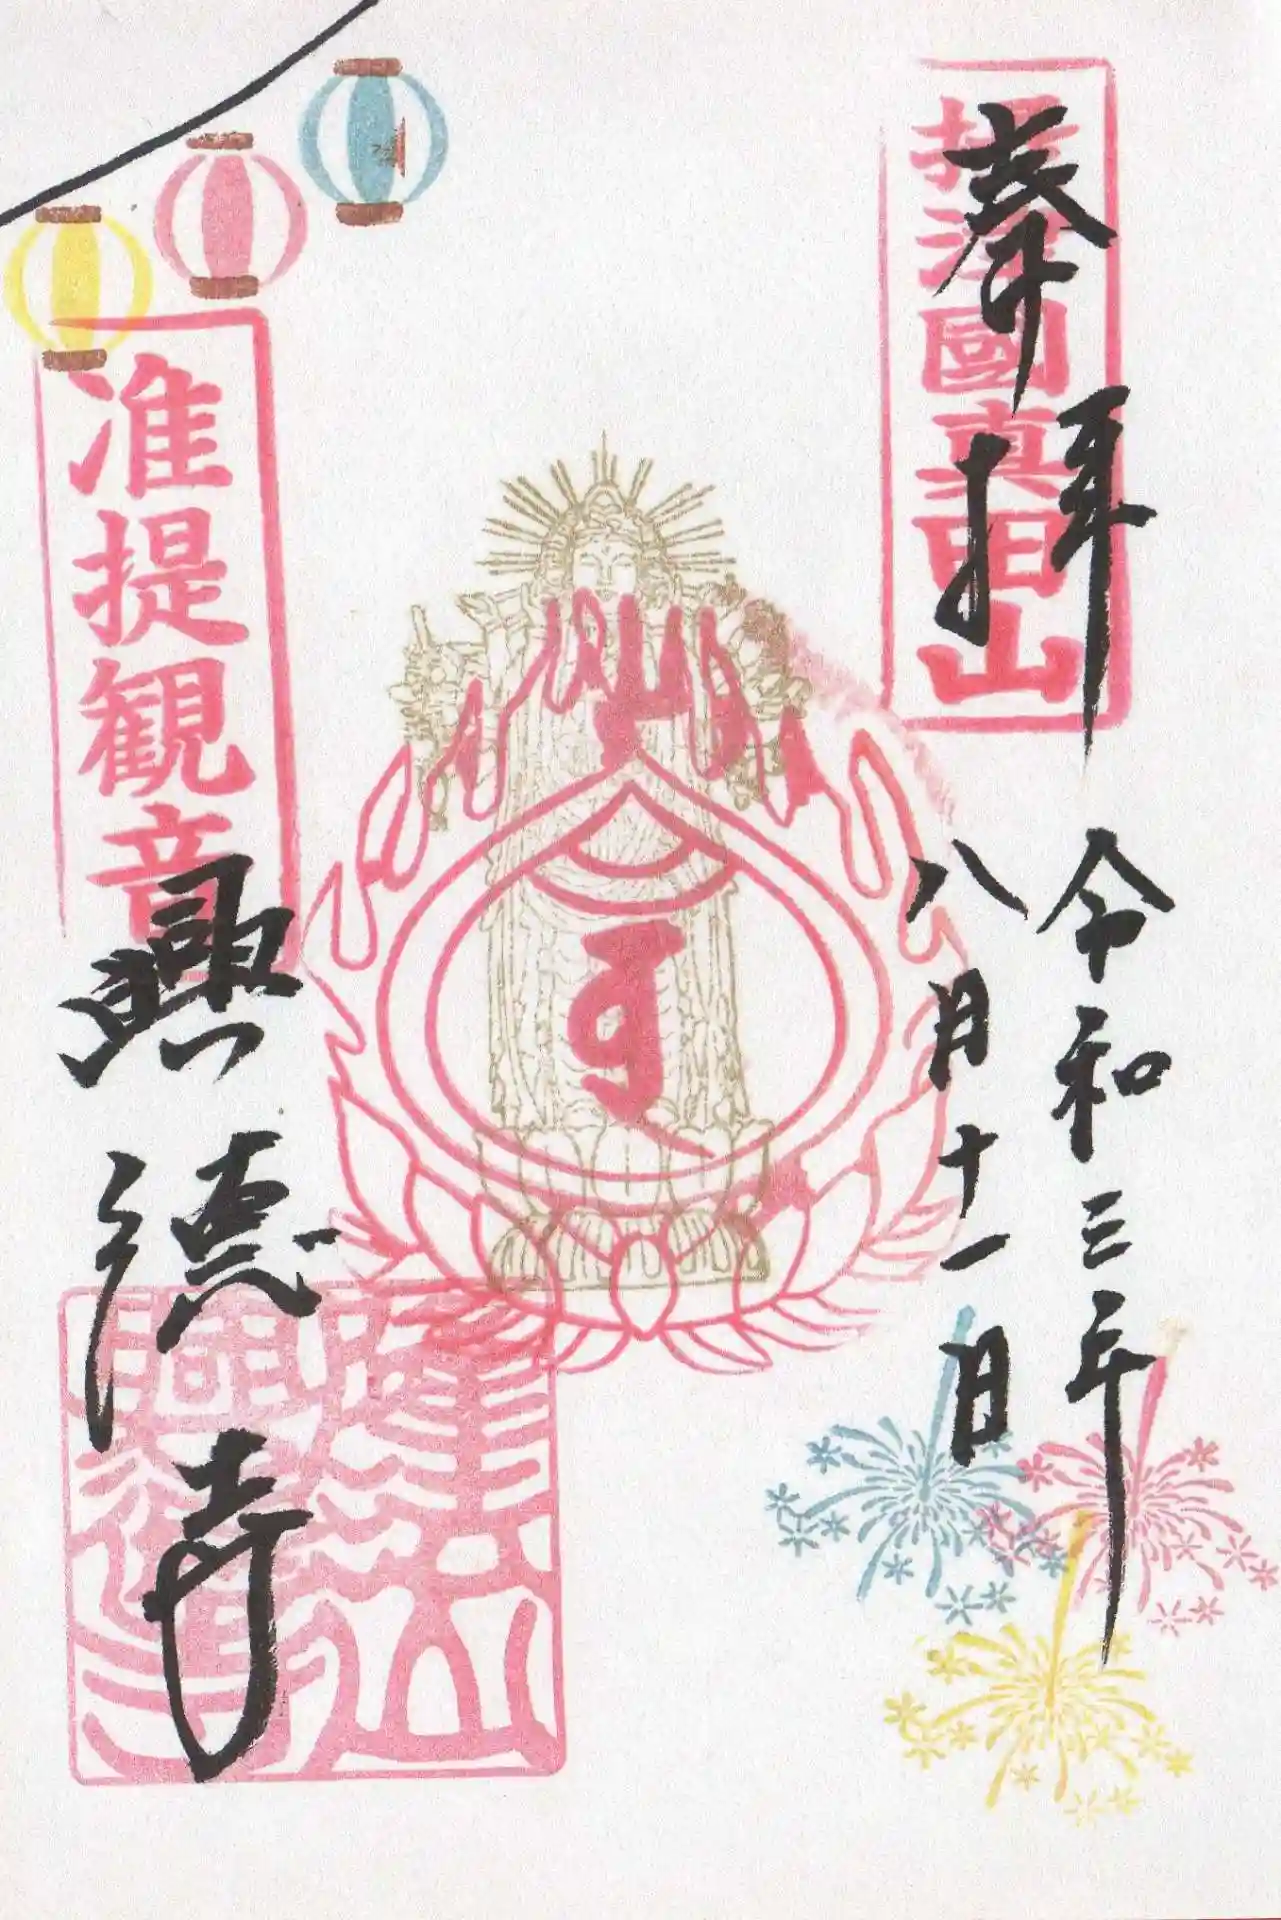 奉拝
摂津國真田山
令和三年
八月十一日
准提観音
興徳寺